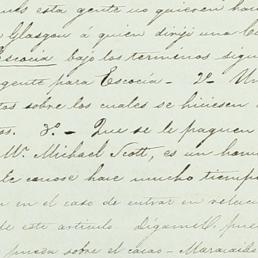 esta gente no quieren hac
Glasgow á quien dirijí una C
Escocia bajo los terminos sigu
gente para Escocia - 2º Un
tas sobre los cuales se hiciesen
as. 3º - Que se le paguen
Mr. Michael Scott, es un hom
conose hace mucho tiempo
en el caso de entrar en relac
de este articulo. dígamelo, pue
sobre el cacao - Maracaibo